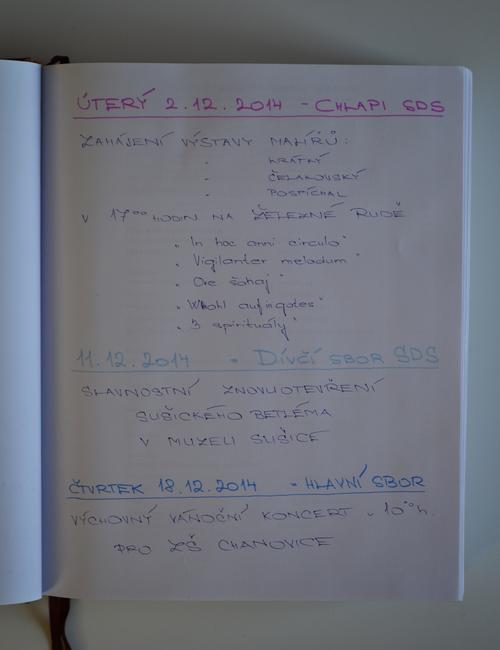 ÚTERÝ 2.12.2014 - CHLAPI SDS
ZAHÁJENÍ VÝSTAVY MALÍŘŮ:
- KRÁTKÝ
- ČELAKOVSKÝ
- POSPÍCHAL
V 17°° HODIN NA ŽELEZNÉ RUDĚ
„ In hoc anni circulo "
„ Vigilanter melodum "
„ Ore šohaj "
„ Wohl auf ingotes "
„ 3 spirituály "
11.12.2014 - DÍVČÍ SBOR SDS
SLAVNOSTNÍ ZNOVUOTEVŘENÍ
SUŠICKÉHO BETLÉMA
V MUZEU SUŠICE
ČTVRTEK 18.12.2014 - HLAVNÍ SBOR
VÝCHOVNÝ VÁNOČNÍ KONCERT V 10°° h.
PRO ZŠ CHANOVICE